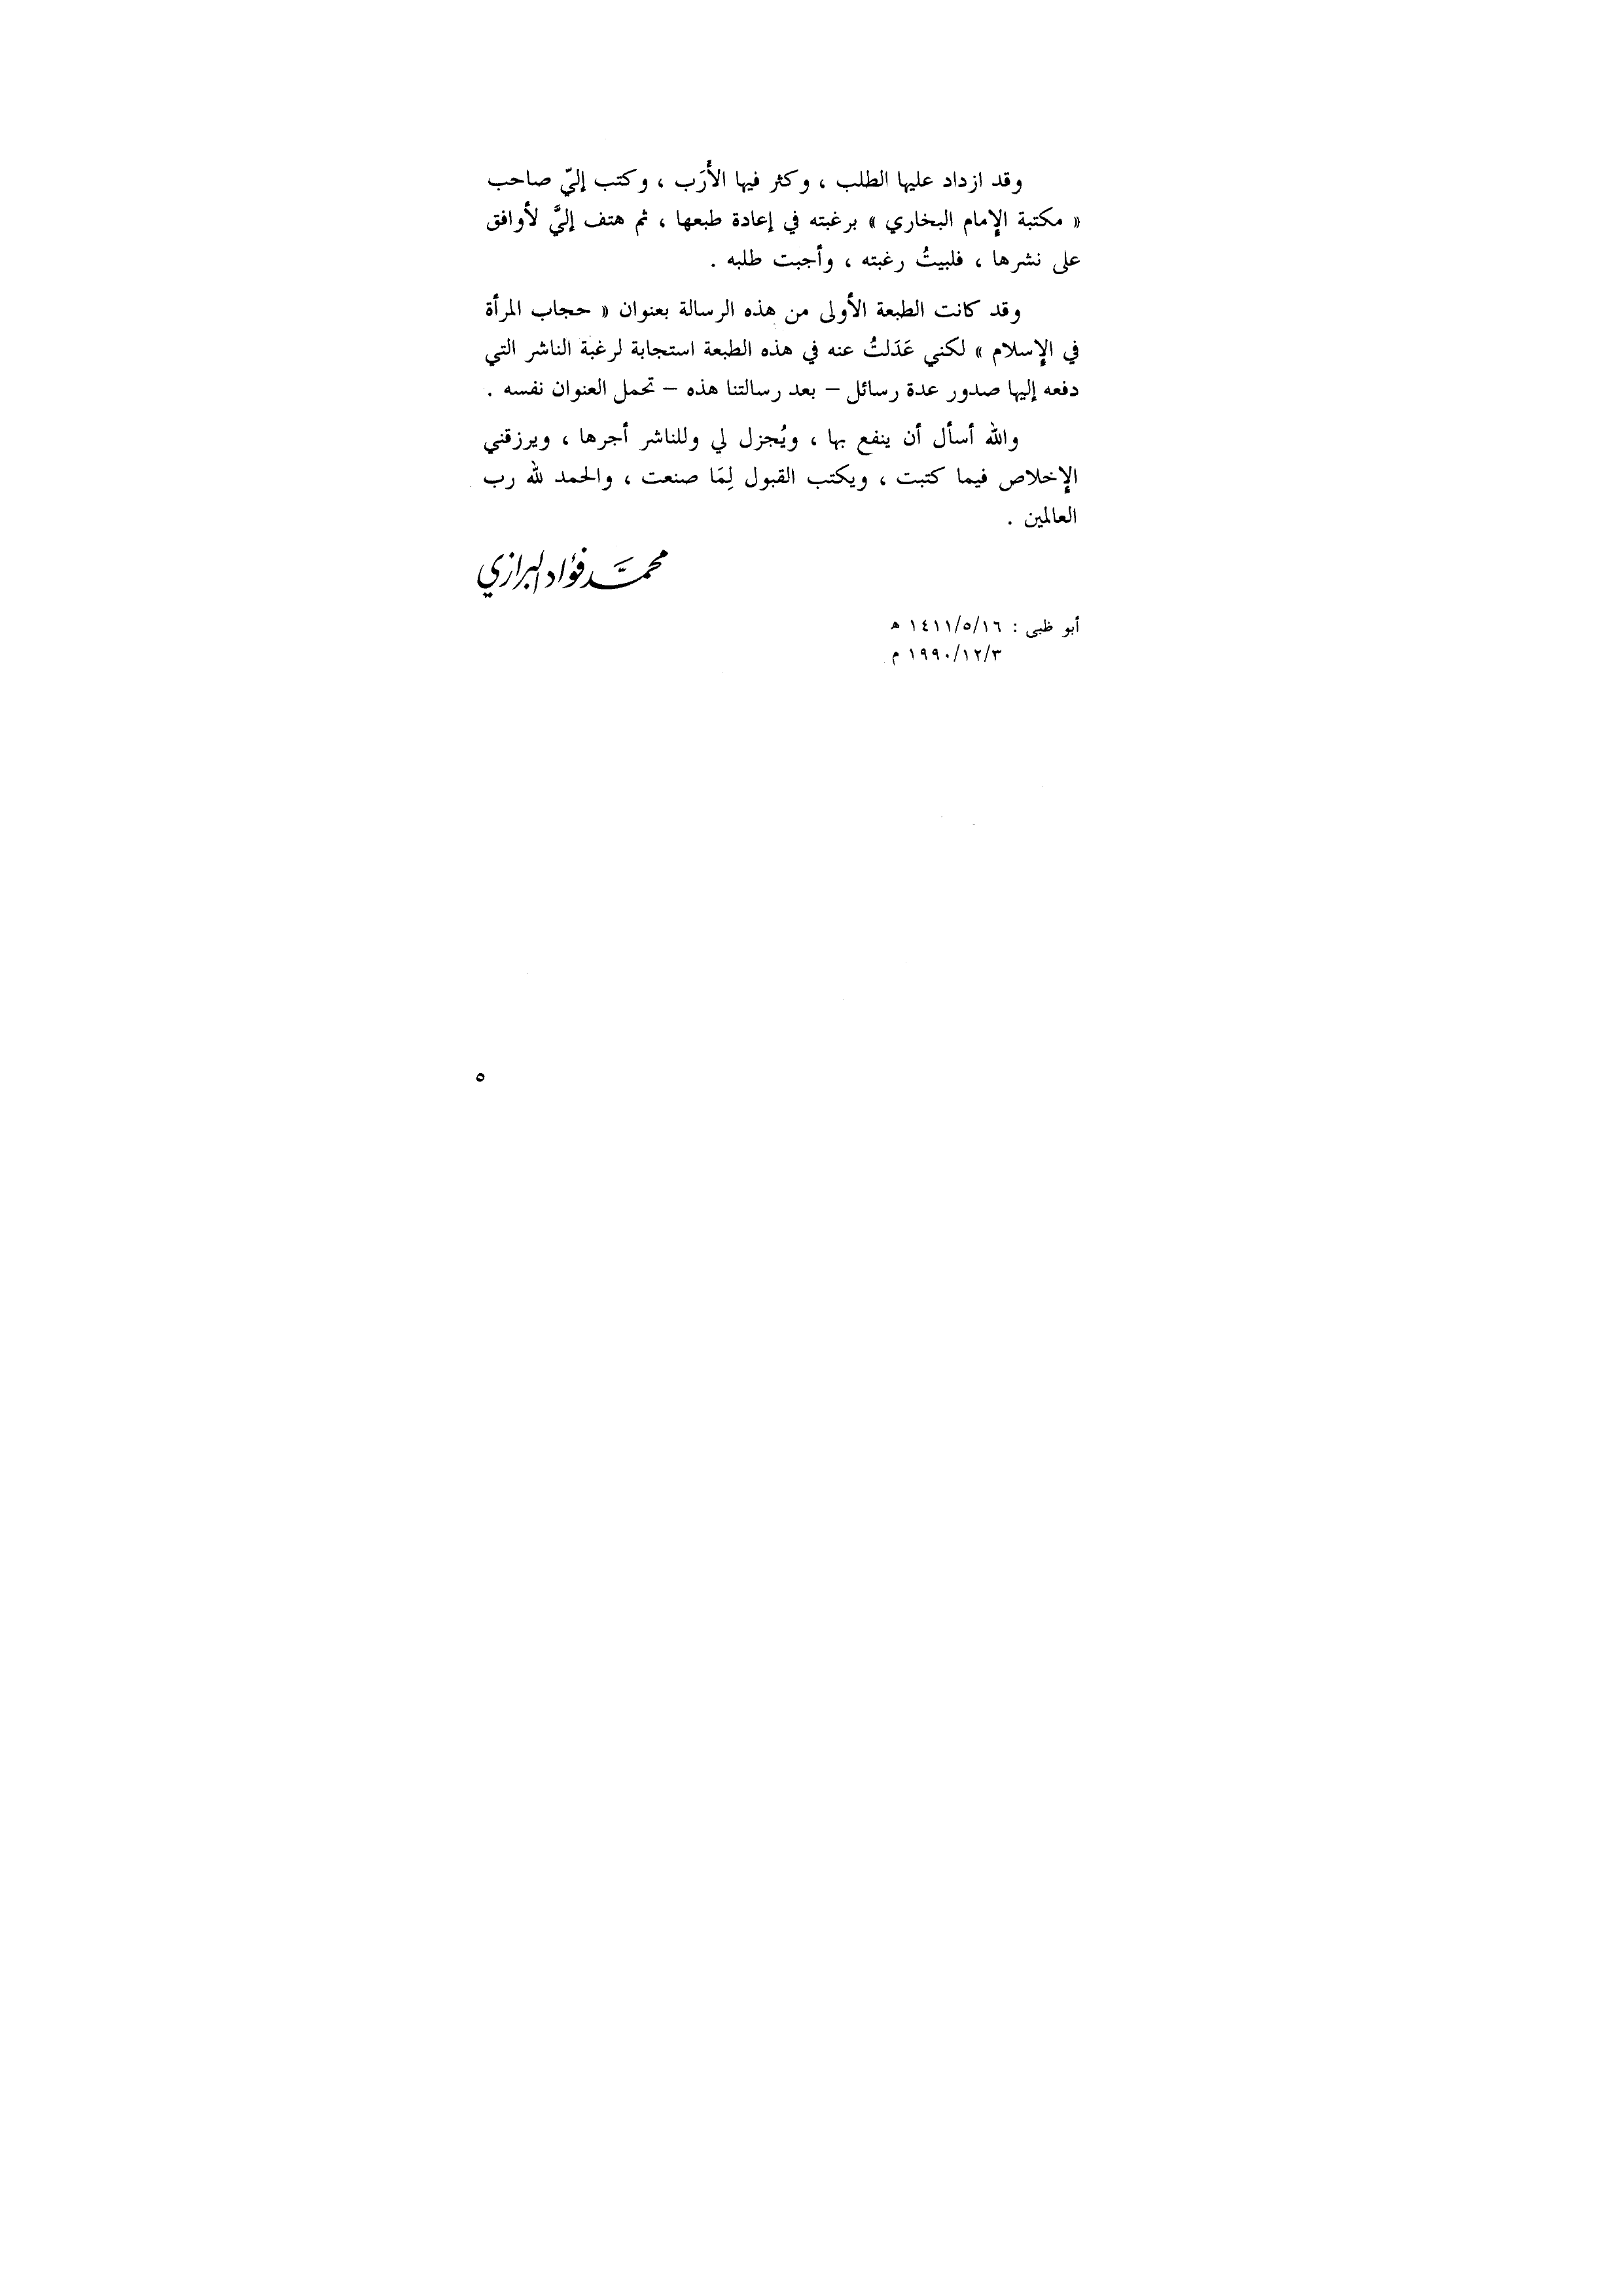 وقد ازداد عليها الطلب ، وكثر فيها الأَرَب ، وكتب إليّ صاحب
« مكتبة الإمام البخاري » برغبته في إعادة طبعها ، ثم هتف إليَّ لأوافق
على نشرها ، فلبيتُ رغبته ، وأجبت طلبه .
وقد كانت الطبعة الأولى من هذه الرسالة بعنوان « حجاب المرأة
في الإسلام » لكني عَدَلتُ عنه في هذه الطبعة استجابة لرغبة الناشر التي
دفعه إليها صدور عدة رسائل – بعد رسالتنا هذه – تحمل العنوان نفسه .
والله أسأل أن ينفع بها ، ويُجزل لي وللناشر أجرها ، ويرزقني
الإخلاص فيما كتبت ، ويكتب القبول لِمَا صنعت ، والحمد لله رب
العالمين .
محمَّد فؤاد البرازي
أبو ظبى : ١٤١١/٥/١٦ هـ
١٩٩٠/١٢/٣ م
٥